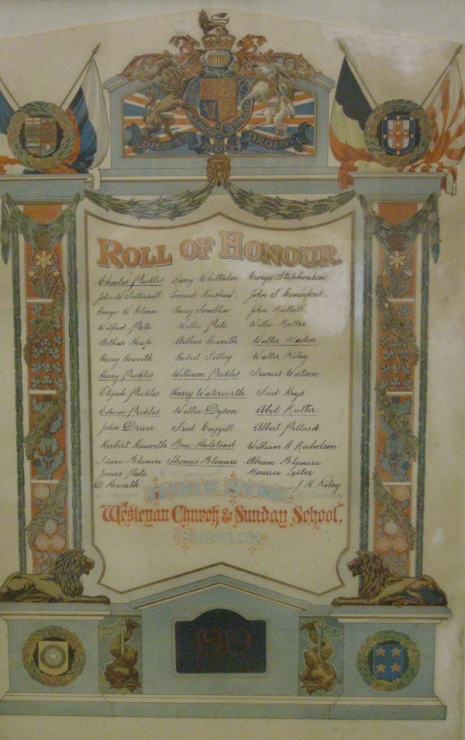 DIEU ET MON DROIT
ROLL OF HONOUR.
Charles Pickles Harry Whittaker George Stephenson
John W Tattersall John S Comerford
George W Harry John
Wilfred Pate Willie Pate Willie Rutter
Arthur Heap Arthur Howorth Walter Haden
Harry Howorth Hubert Walter Riley
Harry Pickles William Pickles Francis Watson
Elijah Pickles Harry Waterworth Fred Hays
Edwin Pickles Willie Dyson Abel Rutter
John Driver Fred Cuggill Albert Pollard
Herbert Howorth Ben Halstead William H Nicholson
Isaac Blamire Thomas Blamire Abram Blamire
James Pate Maurice Lister
Howarth J H Riley
Wesleyan Church & Sunday School,
BURNLEY.